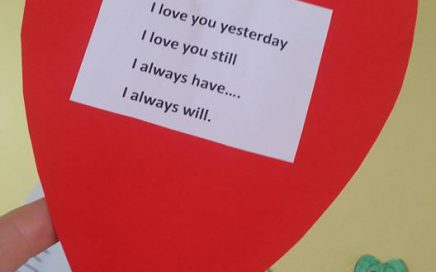 I love you yesterday
I love you still
I always have....
I always will.